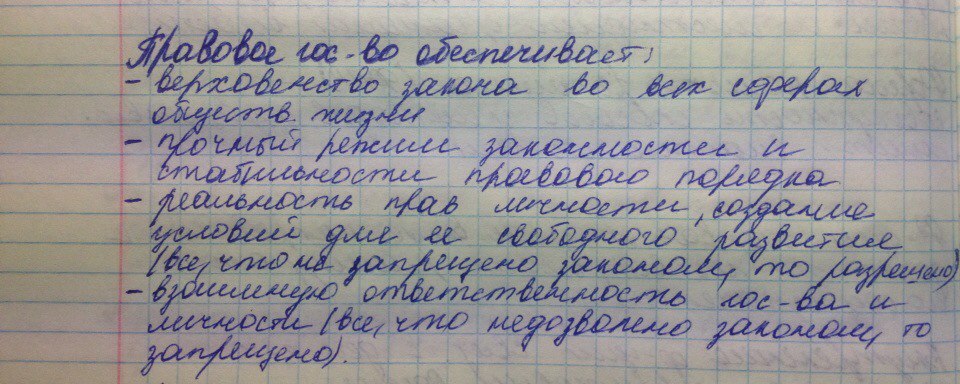 Правовое гос-во обеспечивает:
- верховенство закона во всех сферах
обществ. жизни
- прочный режим законности и
стабильности правового порядка
- реальность прав личности, создание
условий для ее свободного развития
(все, что не запрещено законом, то разрешено)
- взаимную ответственность гос-ва и
личности (все, что недозволено законом, то
запрещено).